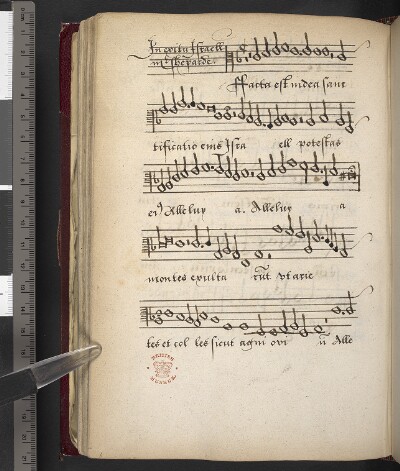 In exitu Israell
mr Sheparde.
Facta est iudea sanc
tificatio eius Isra ell potestas
ei9 Alleluy a. Alleluy a
montes exulta rūt vt arie
tes et col les sicut agni ovi ū Alle
BRITISH
MUSEUM